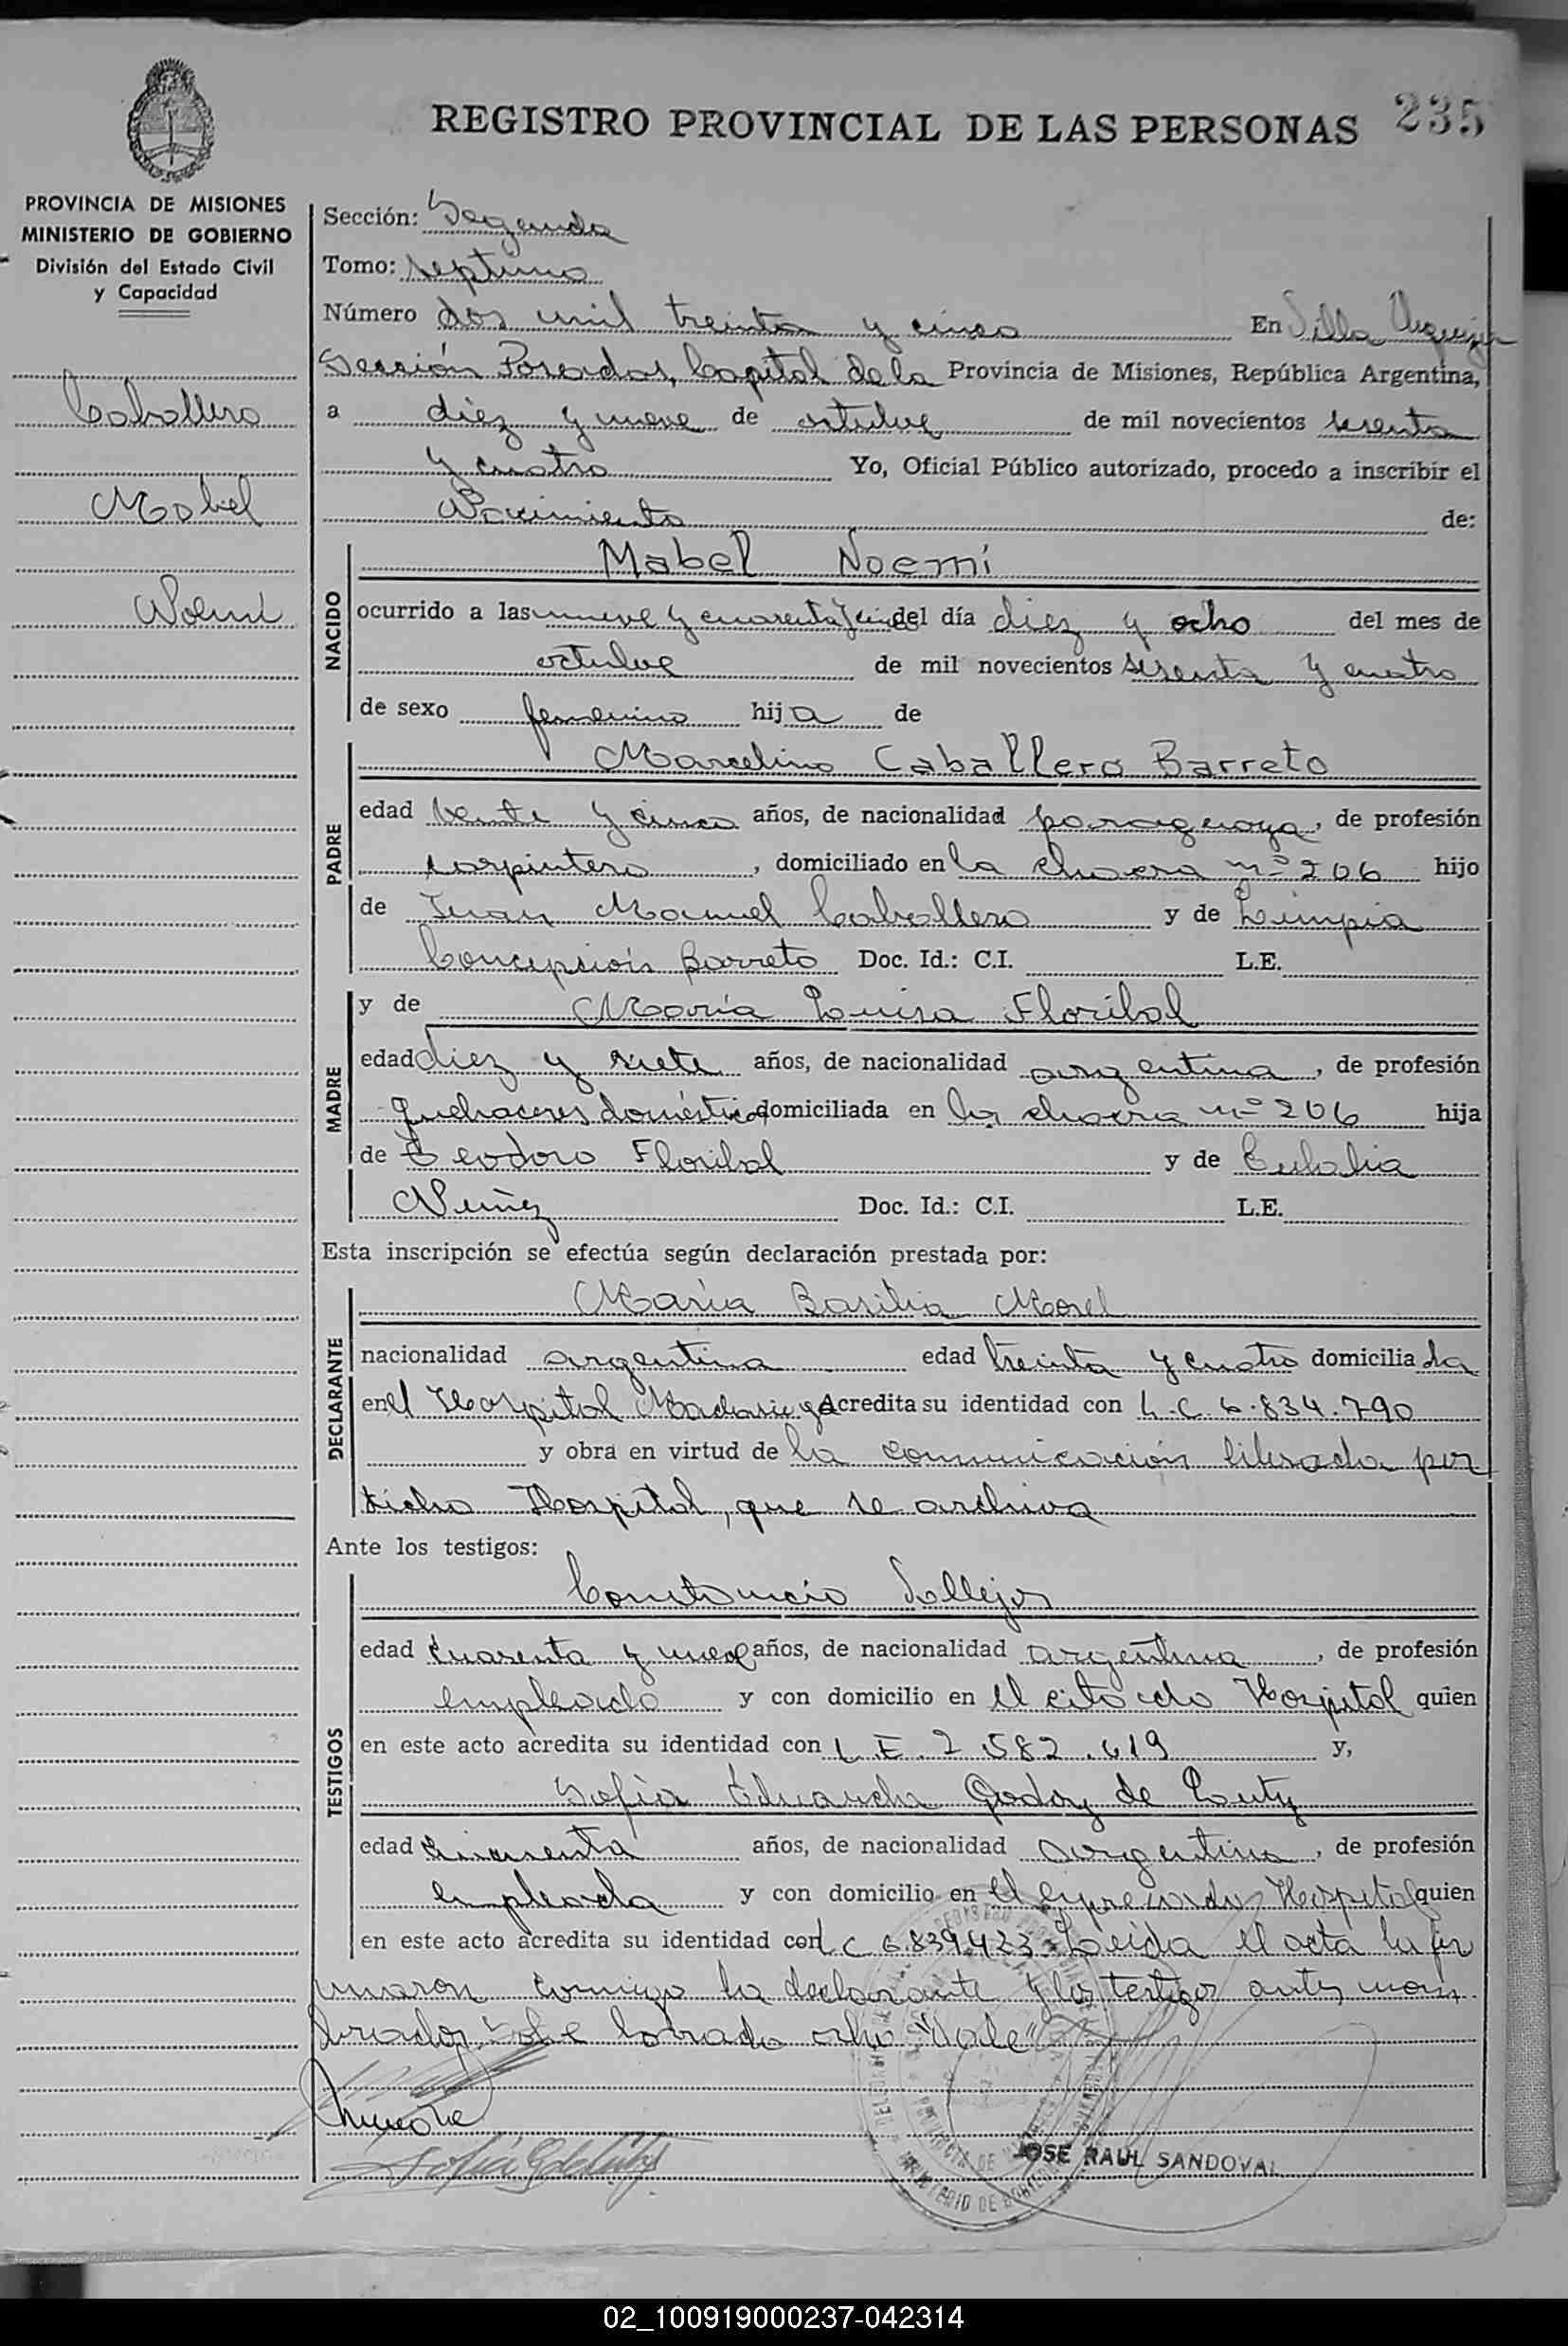 REGISTRO PROVINCIAL DE LAS PERSONAS 235
PROVINCIA DE MISIONES
MINISTERIO DE GOBIERNO
División del Estado Civil
y Capacidad
Caballero
Mabel
Noemí
Sección: Segunda
Tomo: septimo
Número dos mil treinta y cinco En Villa Urquiza
Sección Posadas, Capital de la Provincia de Misiones, República Argentina,
a diez y nueve de octubre de mil novecientos sesenta
y cuatro Yo, Oficial Público autorizado, procedo a inscribir el
Nacimiento de:
NACIDO
Mabel Noemí
ocurrido a las nueve y cuarenta y cinco del día diez y ocho del mes de
octubre de mil novecientos sesenta y cuatro
de sexo femenino hija de
PADRE
Marcelino Caballero Barreto
edad veinte y cinco años, de nacionalidad paraguaya, de profesión
carpintero, domiciliado en la chacra nº 206 hijo
de Juan Manuel Caballero y de Limpia
Concepción Barreto Doc. Id.: C.I. L.E.
MADRE
y de María Luisa Floribal
edad diez y siete años, de nacionalidad argentina, de profesión
quehaceres domésticos domiciliada en la chacra nº 206 hija
de Teodoro Floribal y de Eulalia
Nuñez Doc. Id.: C.I. L.E.
Esta inscripción se efectúa según declaración prestada por:
DECLARANTE
María Basilia Morel
nacionalidad argentina edad treinta y cuatro domiciliada
en el Hospital Madariaga Acredita su identidad con L.C 6.834.790
y obra en virtud de la comunicación librada por
dicho Hospital, que se archiva
Ante los testigos:
TESTIGOS
Constancio Vallejos
edad cuarenta y nueve años, de nacionalidad argentina, de profesión
empleado y con domicilio en el citado Hospital quien
en este acto acredita su identidad con L.E. 2.582.619 y,
Sofía Eduarda Godoy de Luty
edad cincuenta años, de nacionalidad argentina, de profesión
empleada y con domicilio en el expresado Hospital quien
en este acto acredita su identidad con L C 6.839.423 Leida el acta la fir
maron conmigo la declarante y los testigos antes
Sobre borrado ocho "Vale"
JOSE RAUL SANDOVAL
02_100919000237-042314